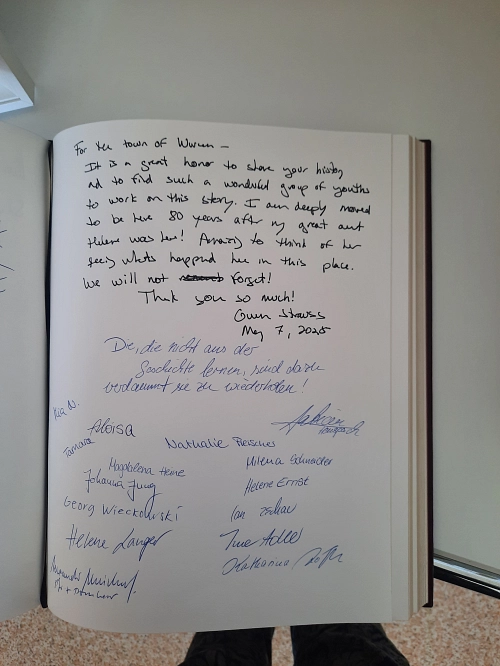 For the town of Wurzen –
It is a great honor to share your history
and to find such a wonderful group of youths
to work on this story. I am deeply moved
to be here 80 years after my great aunt
Helene was here! Amazing to think of her
seeing whats happend here in this place.
We will not forget!
Thank you so much!
Gwen Strauss
May 7, 2025
Die, die nicht aus der
Geschichte lernen, sind dazu
verdammt sie zu wiederholen!
Kia N.
Aloisa
Tamara
Nathalie Fleischer
Magdalena Heine
Milena Schneider
Johanna Jung
Helene Ernst
Georg Wieckowski
Ian Zschau
Helene Langer
June Adler
Katharina